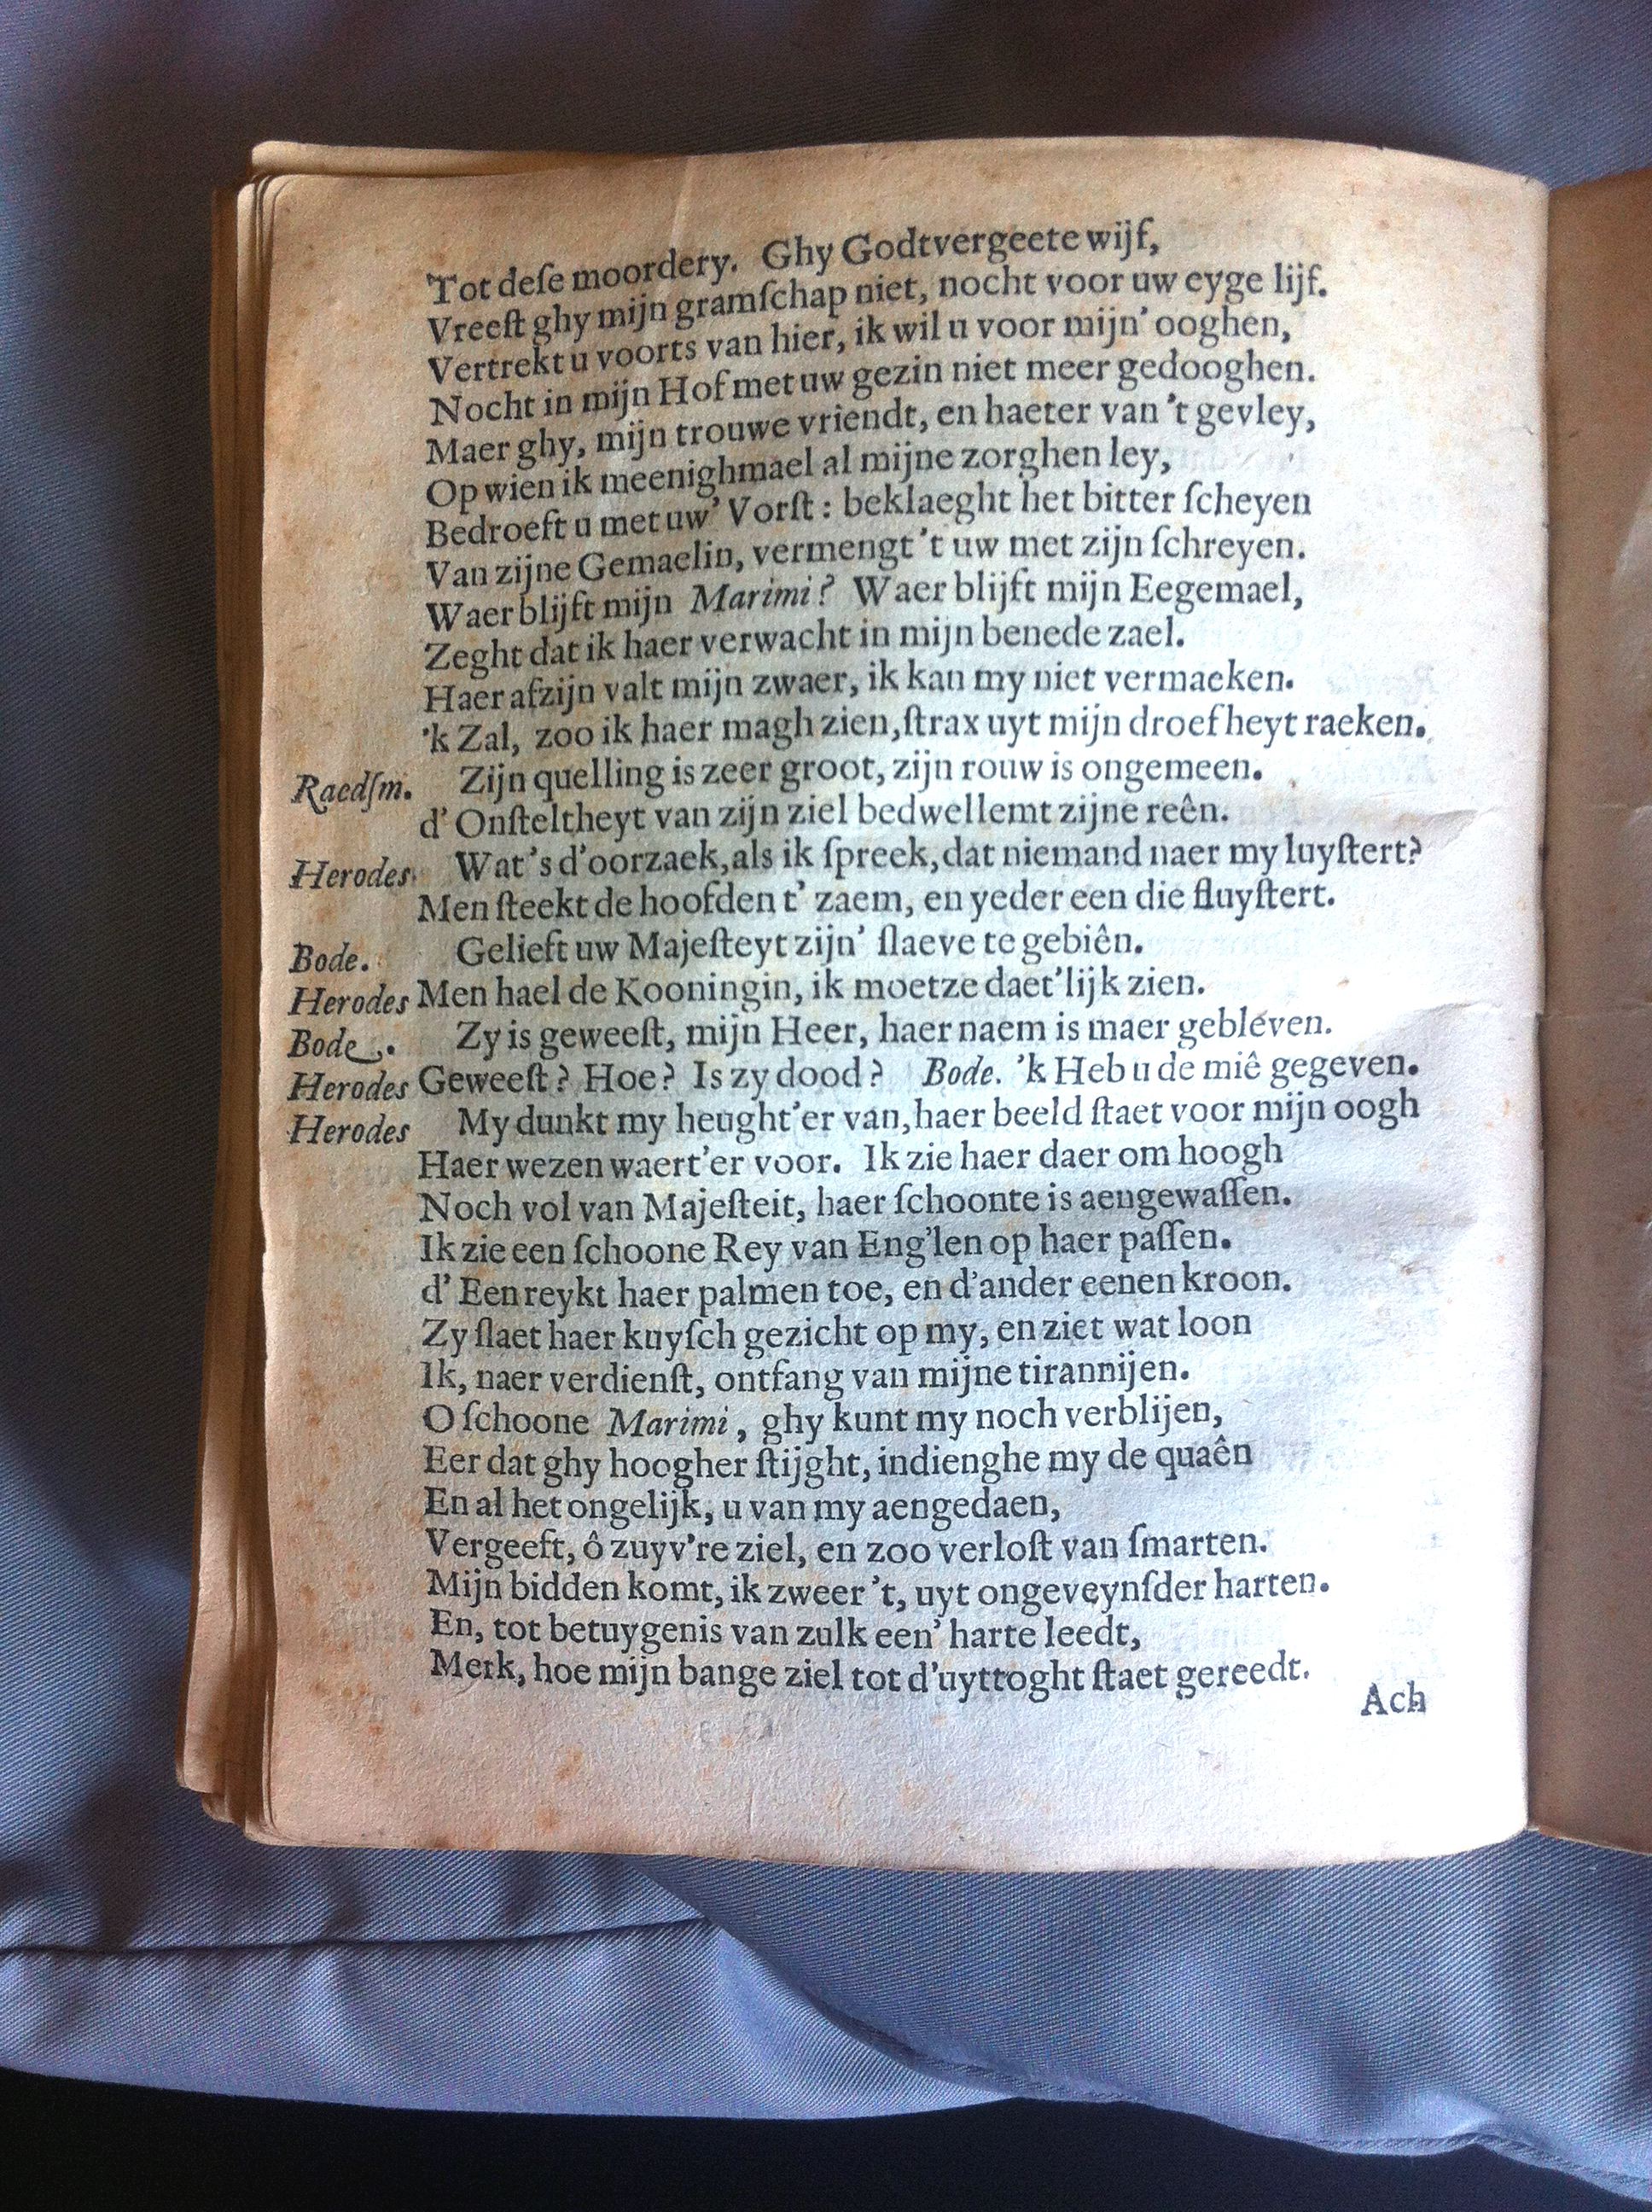 Tot deſe moordery. Ghy Godtvergeete wijf,
Vreeſt ghy mijn gramſchap niet, nocht voor uw eyge lijf.
Vertrekt u voorts van hier, ik wil u voor mijn' ooghen,
Nocht in mijn Hof met uw gezin niet meer gedooghen.
Maer ghy, mijn trouwe vriendt, en haeter van 't gevley,
Op wien ik meenighmael al mijne zorghen ley,
Bedroeft u met uw' Vorſt: beklaeght het bitter ſcheyen
Van zijne Gemaelin, vermengt 't uw met zijn ſchreyen.
Waer blijft mijn Marimi? Waer blijft mijn Eegemael,
Zeght dat ik haer verwacht in mijn benede zael.
Haer afzijn valt mijn zwaer, ik kan my niet vermaeken.
'k Zal, zoo ik haer magh zien, ſtrax uyt mijn droefheyt raeken.
Raedſm. Zijn quelling is zeer groot, zijn rouw is ongemeen.
d' Onſteltheyt van zijn ziel bedwellemt zijne reên.
Herodes. Wat's d'oorzaek, als ik ſpreek, dat niemand naer my luyſtert?
Men ſteekt de hoofden t' zaem, en yeder een die fluyſtert.
Bode. Gelieft uw Majeſteyt zijn' ſlaeve te gebiên.
Herodes Men hael de Kooningin, ik moetze daet'lijk zien.
Bode. Zy is geweeſt, mijn Heer, haer naem is maer gebleven.
Herodes Geweeſt? Hoe? Is zy dood? Bode. 'k Heb u de miê gegeven.
Herodes My dunkt my heught'er van, haer beeld ſtaet voor mijn oogh
Haer wezen waert'er voor. Ik zie haer daer om hoogh
Noch vol van Majeſteit, haer ſchoonte is aengewaſſen.
Ik zie een ſchoone Rey van Eng'len op haer paſſen.
d' Een reykt haer palmen toe, en d'ander eenen kroon.
Zy ſlaet haer kuyſch gezicht op my, en ziet wat loon
Ik, naer verdienſt, ontfang van mijne tirannijen.
O ſchoone Marimi, ghy kunt my noch verblijen,
Eer dat ghy hoogher ſtijght, indienghe my de quaên
En al het ongelijk, u van my aengedaen,
Vergeeft, ô zuyv're ziel, en zoo verloſt van ſmarten.
Mijn bidden komt, ik zweer 't, uyt ongeveynſder harten.
En, tot betuygenis van zulk een' harte leedt,
Merk, hoe mijn bange ziel tot d'uyttoght ſtaet gereedt.
Ach